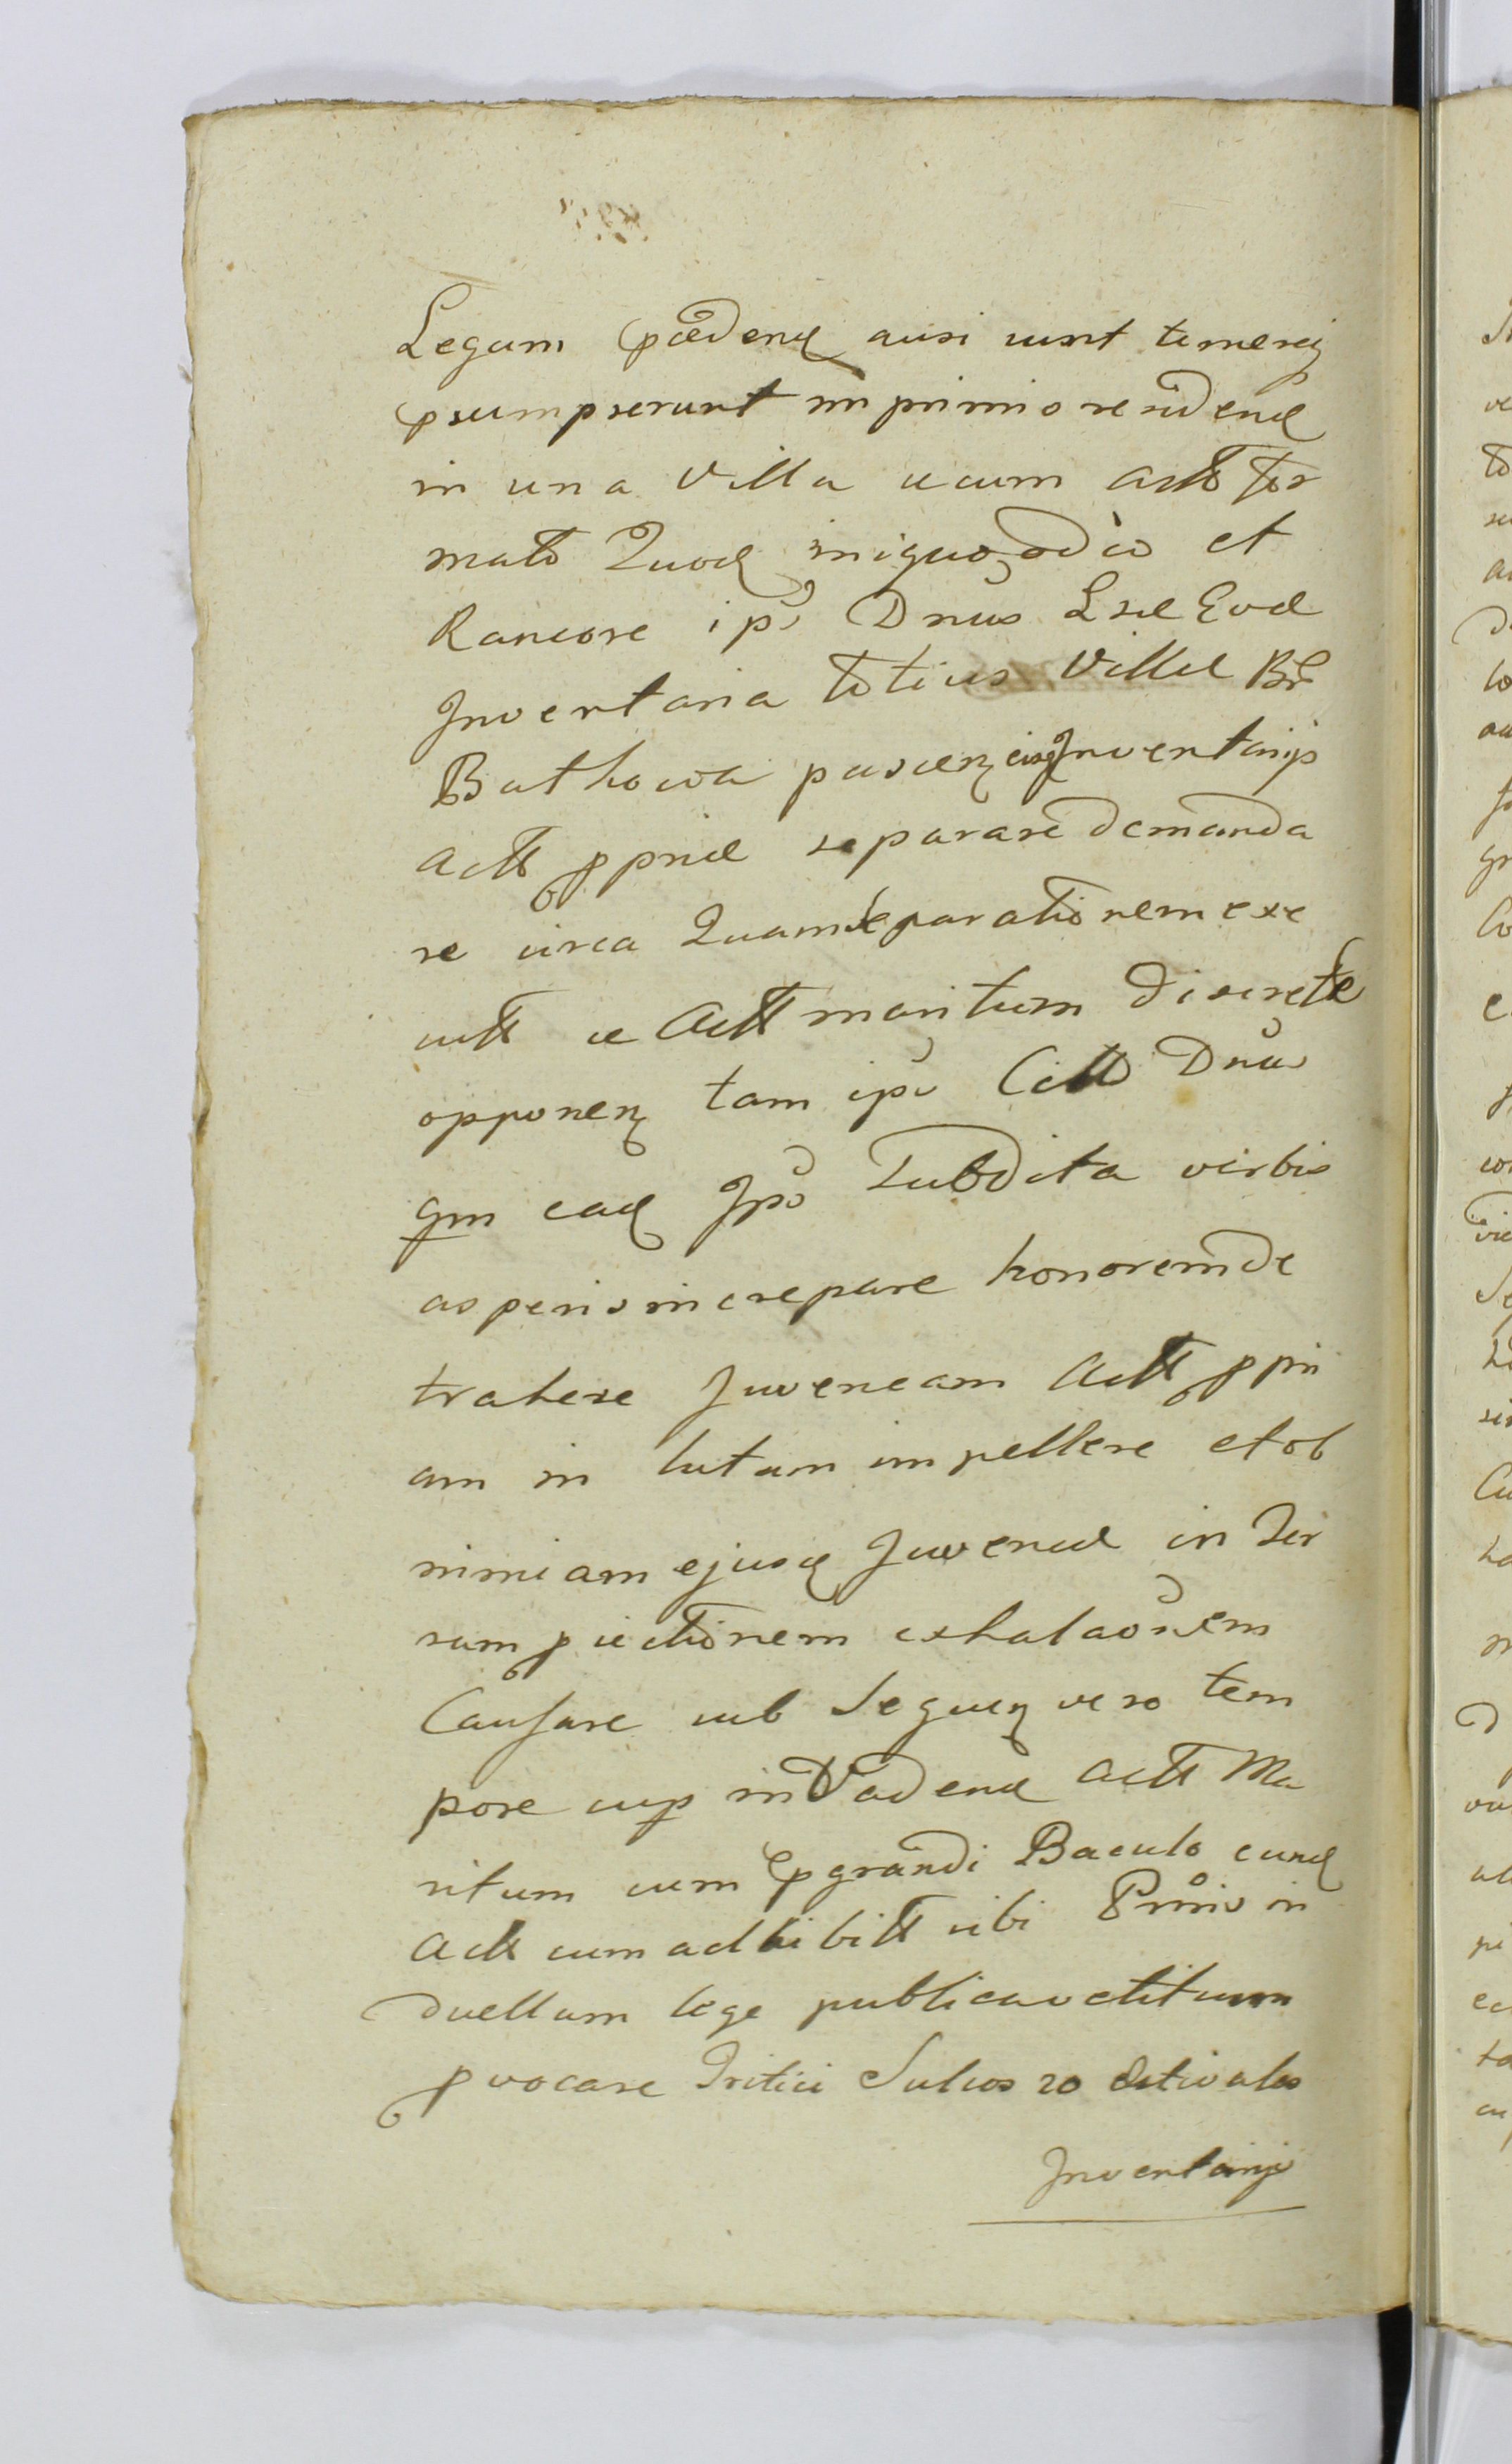 Legum  ausi sunt temereq
psumpserunt in primis residend
in una Villa secum Actt for
mato Quod iniquo odio et
Rancore ips Dnus
Inventaria totius Villae
Bathowa pascen eisq Inventarijs
Actt ppriae separare demanda
re circa Quam Separationem exe
cutt ac Actt maritum discrete
opponen tam ips Citto Dnus
qm ead Ips Subdita verbis
asperis increpare honorem de
trahere Juvencam Actt ppri
am in lutum impellere et ob
nimiam ejusd Juvencae in Ter
ram pjectionem exhalaonem
Causare sub Sequen vero tem
pore sup invadend Actt Ma
ritum cum pgrandi Baculo eund
Actt cum adhibitt sibi in
duellum lege publica vetitum
pvocare Tritici Sulcos 20 Estivales
Inventarijs